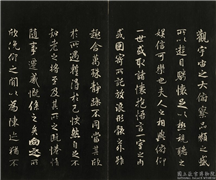 觀宇宙之大俯察品類之盛
所以遊目騁懷足以極視聽
之娛信可樂也夫人之相與俯仰
一世或取諸懷抱悟言一室之內
或因寄所託放浪形骸之外雖
趣舍萬殊靜躁不同當其欣
於所遇暫得於己快然自足不
知老之將至及其所之既惓情
隨事遷感慨係之矣向之所
欣俛仰之間以為陳迹猶不